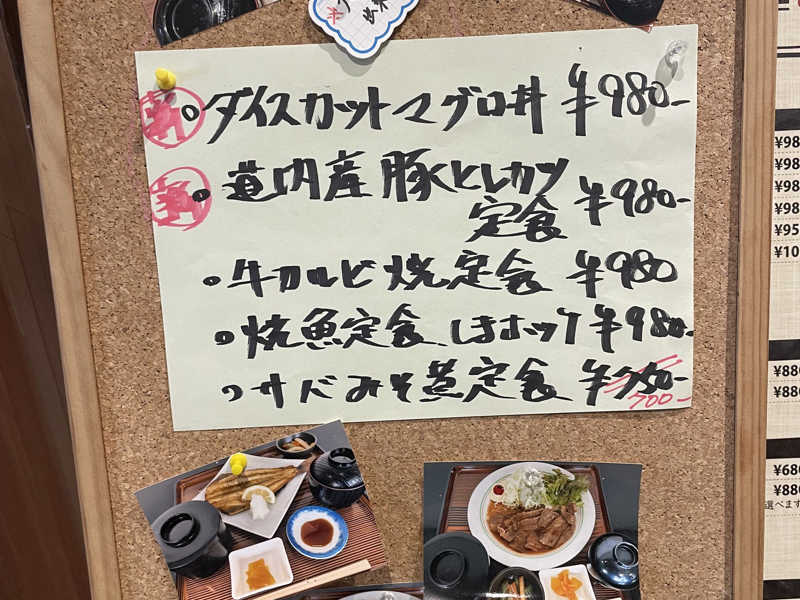 新 ・ダイスカットマグロ丼 ¥980-
新 ・道内産豚ヒレカツ
定食 ¥980-
・牛カルビ焼定食 ¥980
・焼魚定食 しまホッケ ¥980-
・サバみそ煮定食 ¥750-
700-
¥95
¥10
¥880
¥880
¥680
¥880
選べます